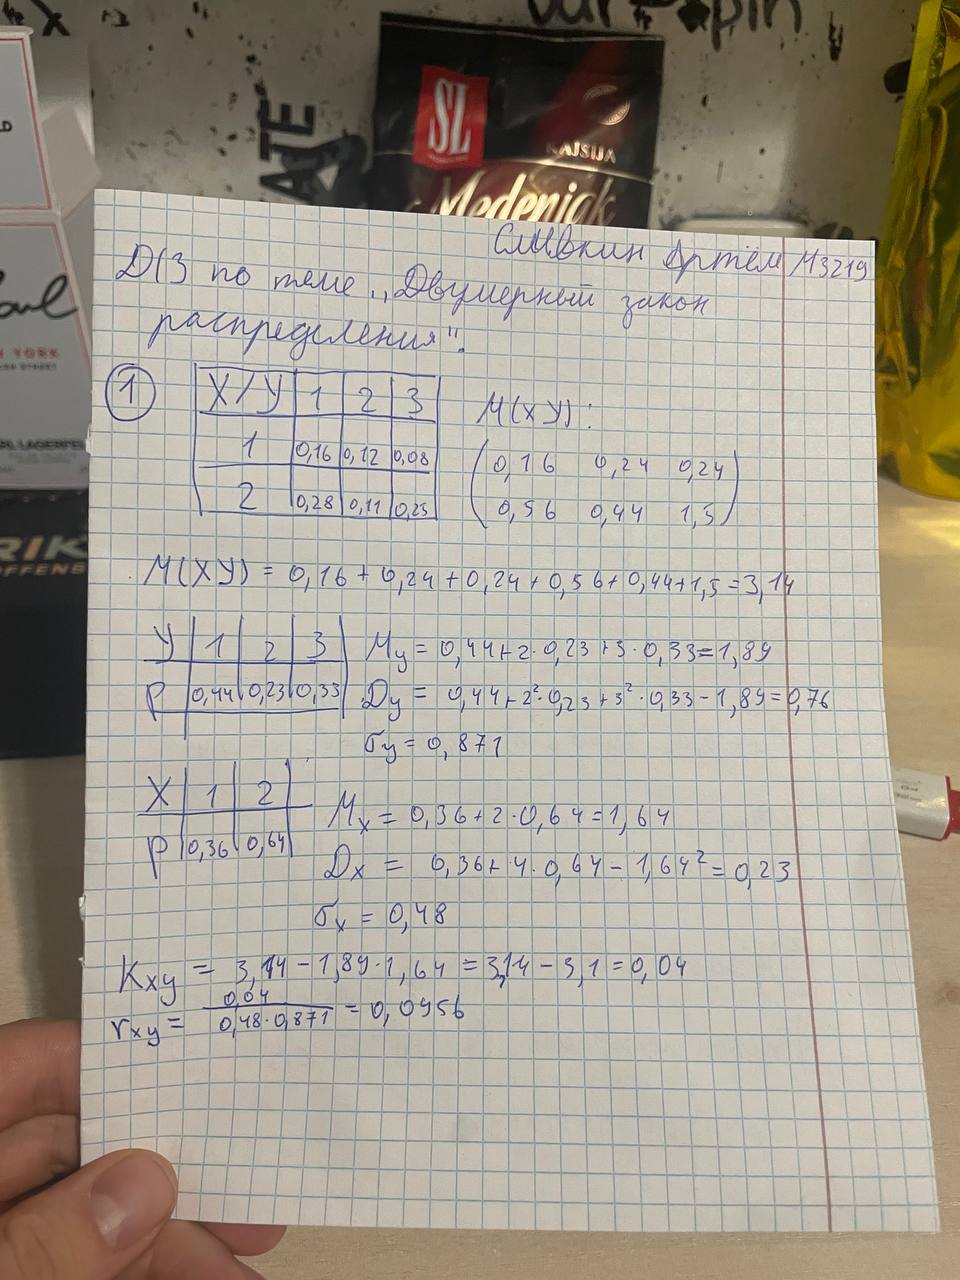 SL
KAJSIJA
Medenjak
YORK
Сливкин Артём М3219
Д(З по теме „Двумерный закон
распределения".
1
X/У 1 2 3
1 0,16 0,12 0,08
2 0,28 0,11 0,25
М(ХУ):
0,16 0,24 0,24
0,56 0,44 1,5
М(ХУ) = 0,16 + 0,24 + 0,24 + 0,56 + 0,44 + 1,5 = 3,14
У 1 2 3
P 0,44 0,23 0,33
Mу = 0,44 + 2·0,23 + 3·0,33 = 1,89
Dу = 0,44 + 2²·0,23 + 3²·0,33 - 1,89 = 0,76
σу = 0,871
X 1 2
P 0,36 0,64
Mx = 0,36 + 2·0,64 = 1,64
Dx = 0,36 + 4·0,64 - 1,64² = 0,23
σx = 0,48
Kxy = 3,14 - 1,89·1,64 = 3,14 - 3,1 = 0,04
rxy = 0,04 / 0,48·0,871 = 0,0956